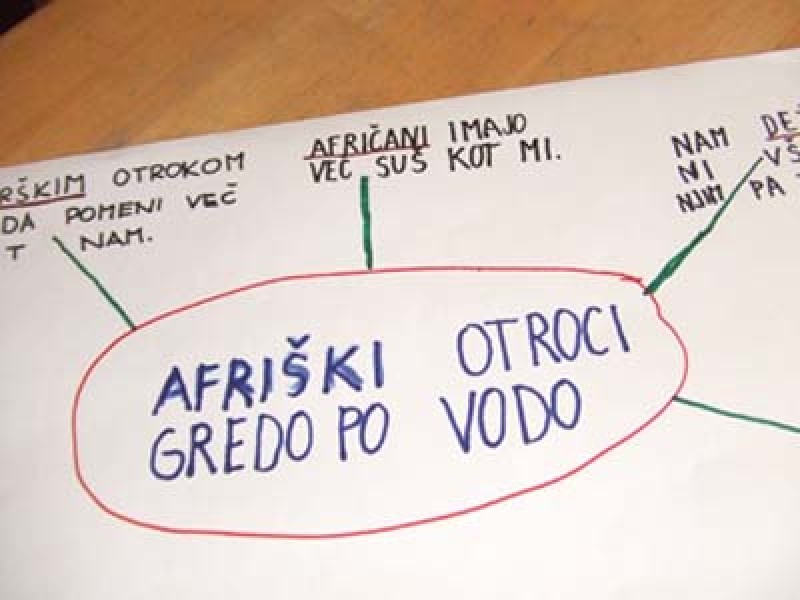 RŠKIM OTROKOM
DA POMENI VEČ
T NAM.
AFRIČANI IMAJO
VEČ SUŠ KOT MI.
NAM DEŽ
NI VŠ
NJIM PA
AFRIŠKI OTROCI
GREDO PO VODO